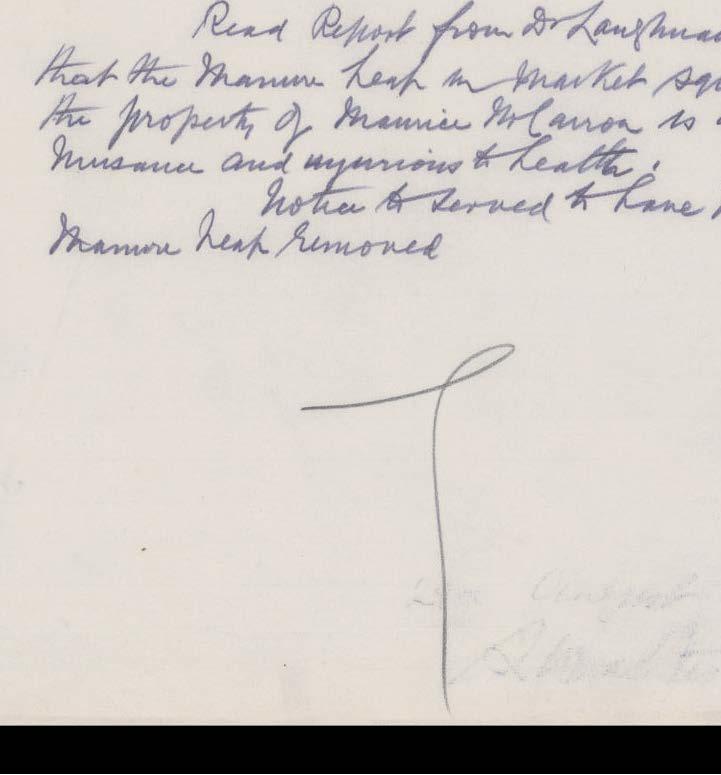 Read Report from Dr
that the Manure heap in Market
the property of Maurice McCarron is
Nusance and injurious to health.
Notice to served to have
Manure heap removed